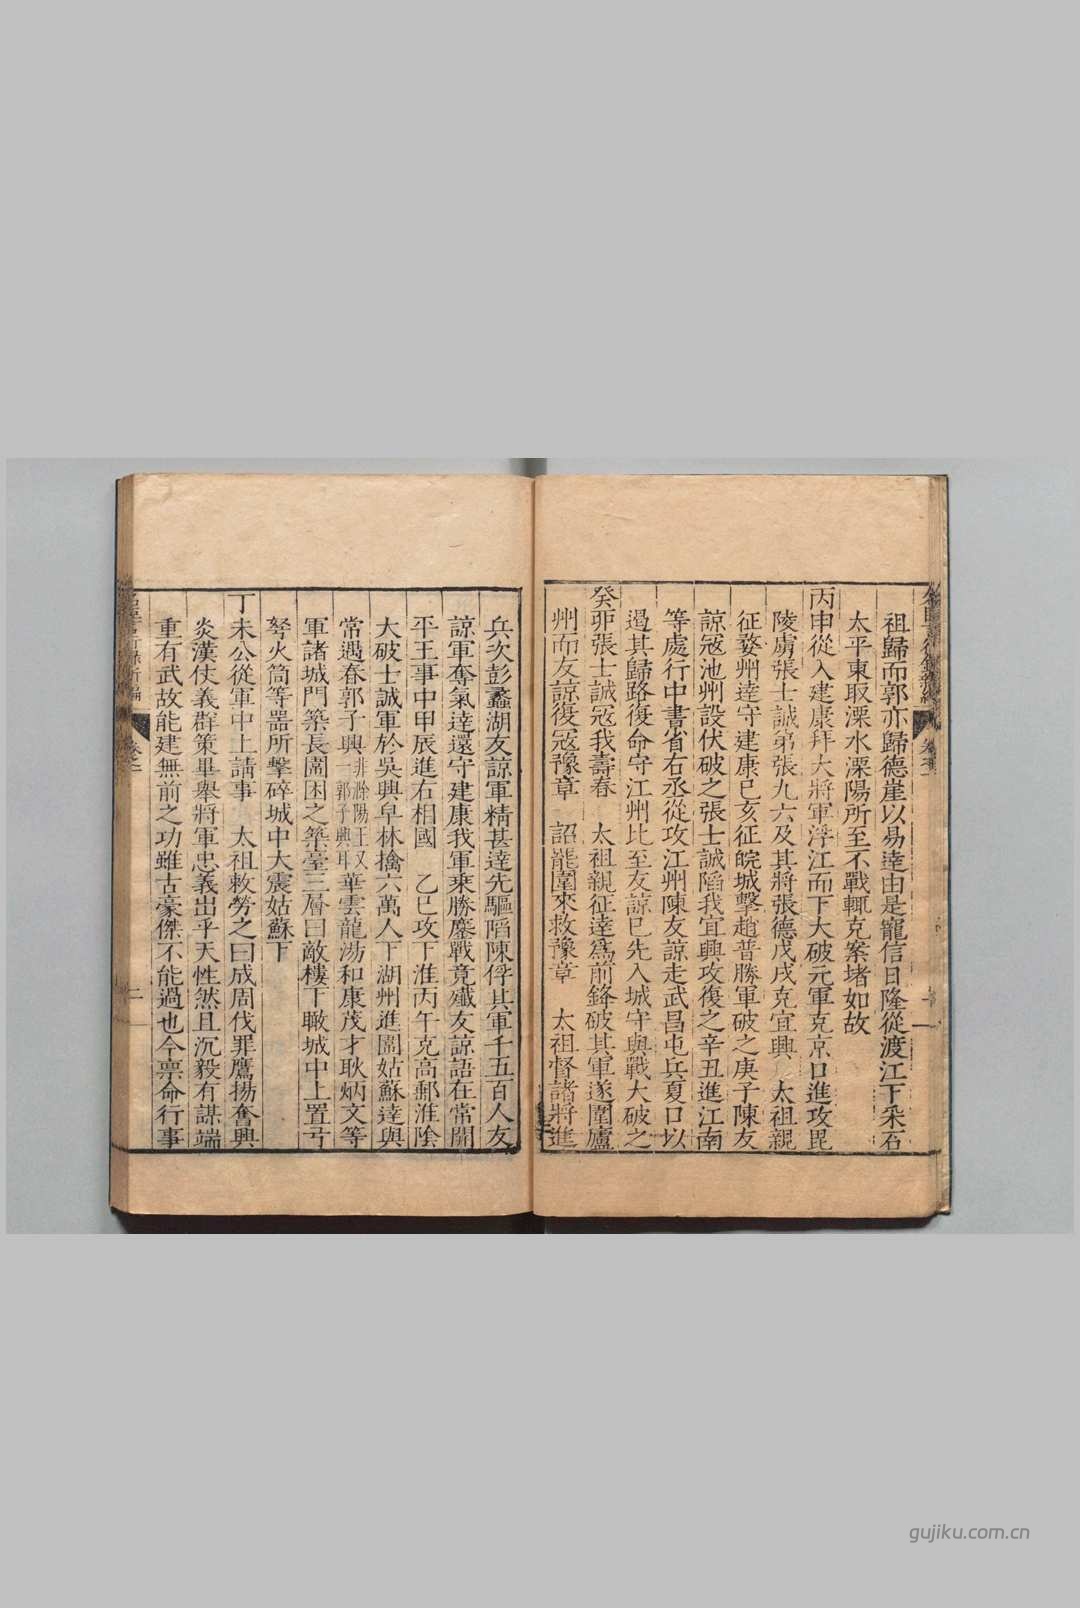 祖歸而郭亦歸德崖以易達由是寵信日隆從渡江下采石
太平東取溧水溧陽所至不戰輒克案堵如故
丙申從入建康拜大將軍浮江而下大破元軍克京口進攻毘
陵虜張士誠弟張九六及其將張德戊戌克宜興 太祖親
征婺州達守建康己亥征皖城擊趙普勝軍破之庚子陳友
諒寇池州設伏破之張士誠陷我宜興攻復之辛丑進江南
等處行中書省右丞從攻江州陳友諒走武昌屯兵夏口以
遏其歸路復命守江州比至友諒已先入城守與戰大破之
癸卯張士誠寇我壽春 太祖親征達為前鋒破其軍遂圍廬
州而友諒復寇豫章 詔罷圍來救豫章 太祖督諸將進
兵次彭蠡湖友諒軍精甚達先驅陷陳俘其軍千五百人友
諒軍奪氣達還守建康我軍乘勝鏖戰竟殲友諒語在常開
平王事中甲辰進右相國 乙巳攻下淮丙午克高郵淮陰
大破士誠軍於吳興阜林擒六萬人下湖州進圍姑蘇達與
常遇春郭子興非滁陽王又一郭子興耳華雲龍湯和康茂才耿炳文等
軍諸城門築長圍困之築臺三層曰敵樓下瞰城中上置弓
弩火筒等器所擊碎城中大震姑蘇下
丁未公從軍中上請事 太祖敕勞之曰成周伐罪鷹揚奮興
炎漢仗義群策畢舉將軍忠義出乎天性然且沉毅有謀端
重有武故能建無前之功雖古豪傑不能過也今稟命行事
二
gujiku.com.cn